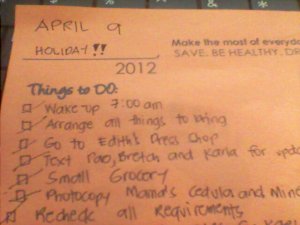 APRIL 9
HOLIDAY!! Make the most of everyda
SAVE. BE HEALTHY. DR
2012
Things to DO:
Wake up 7:00 am
Arrange all things to bring
Go to Edith's Dress Shop
Text Pao, Bretch and Karla for upda
Small Grocery
Photocopy Mama's Cedula and Mine
Recheck all Requirements